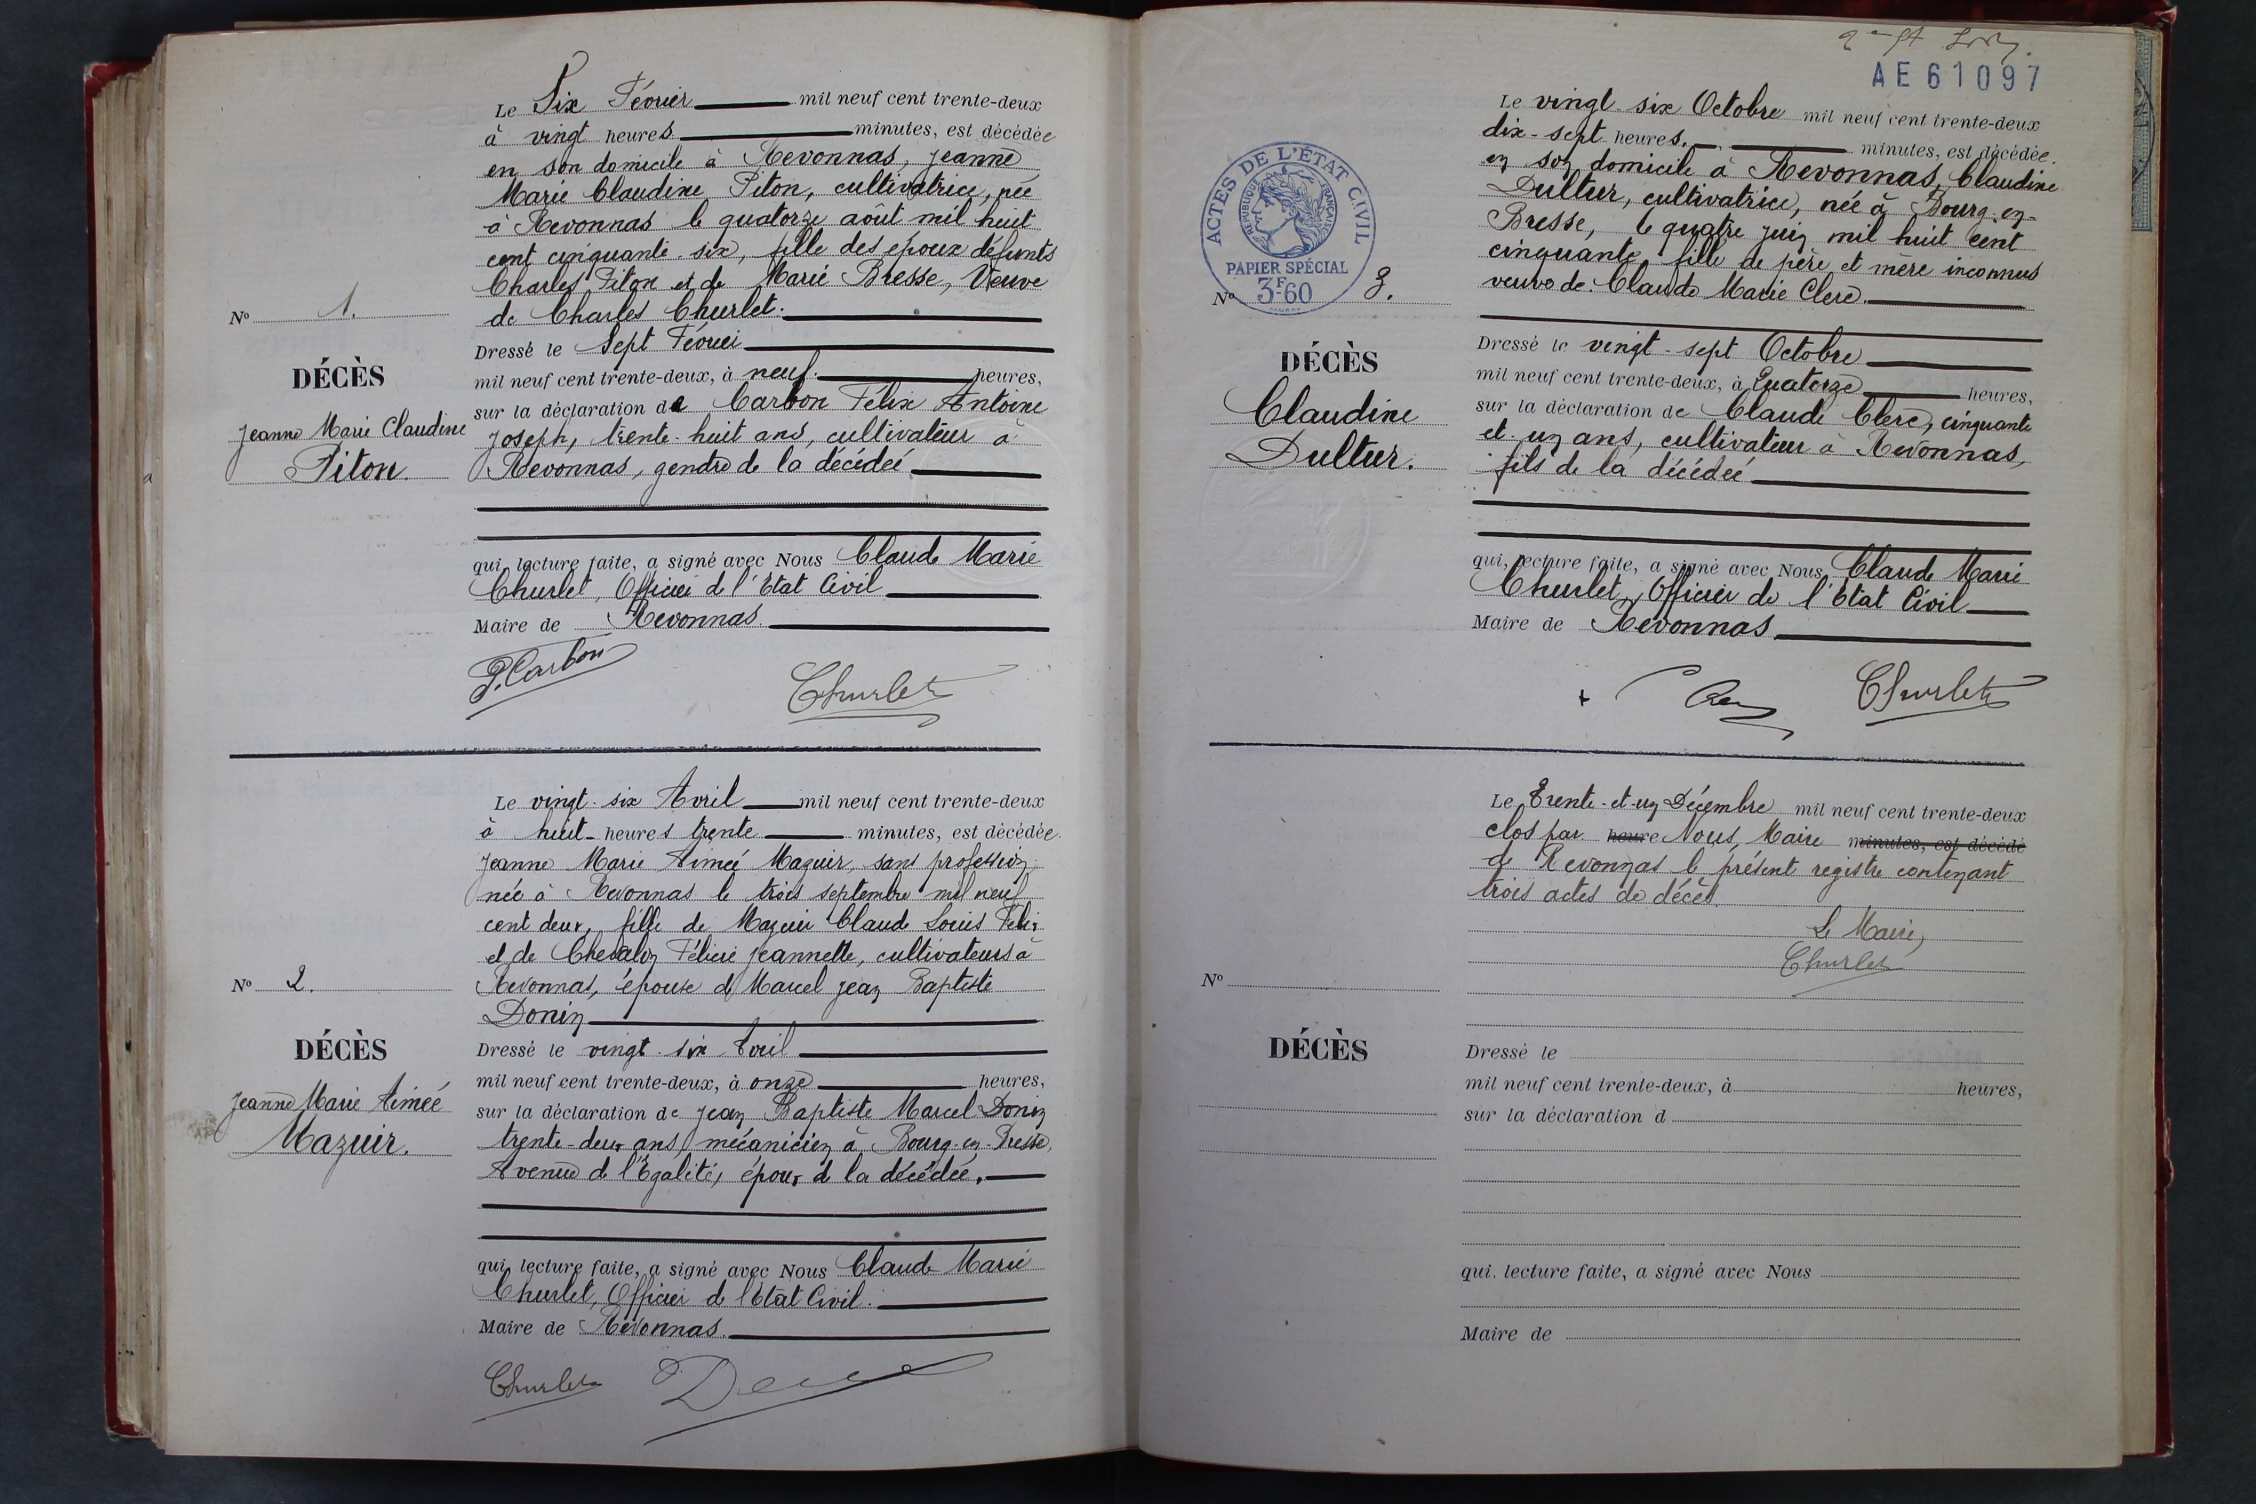 Le Six Février mil neuf cent trente-deux
à vingt heures minutes, est décédée
en son domicile à Revonnas, Jeanne
Marie Claudine Piton, cultivatrice, née
à Revonnas le quatorze août mil huit
cent cinquante-six, fille des époux défunts
Charles Piton et de Marie Bresse, Veuve
de Charles Churlet.
N° 1.
DÉCÈS
Jeanne Marie Claudine
Piton.
Dressé le Sept Février
mil neuf cent trente-deux, à neuf heures,
sur la déclaration de Carbon Félix Antoine
Joseph, trente-huit ans, cultivateur à
Revonnas, gendre de la décédée
qui, lecture faite, a signé avec Nous Claude Marie
Churlet, Officier de l'Etat Civil
Maire de Revonnas.
Carbon
Churlet
Le vingt-six Avril mil neuf cent trente-deux
à huit heures trente minutes, est décédée
Jeanne Marie Aimée Mazuir, sans profession
née à Revonnas le trois septembre mil neuf
cent deux, fille de Mazuir Claude Louis Félix
et de Chevalon Félicie Jeannette, cultivateurs à
Revonnas, épouse de Marcel Jean Baptiste
Donin
N° 2.
DÉCÈS
Jeanne Marie Aimée
Mazuir.
Dressé le vingt-six Avril
mil neuf cent trente-deux, à onze heures,
sur la déclaration de Jean Baptiste Marcel Donin
trente-deux ans, mécanicien à Bourg-en-Bresse,
Avenue de l'Egalité, époux de la décédée.
qui, lecture faite, a signé avec Nous Claude Marie
Churlet, Officier de l'Etat Civil.
Maire de Revonnas.
Churlet
AE 61097
ACTES DE L'ÉTAT CIVIL
RÉPUBLIQUE FRANÇAISE
PAPIER SPÉCIAL
3F60
Le vingt-six Octobre mil neuf cent trente-deux
dix-sept heures, minutes, est décédée.
en son domicile à Revonnas, Claudine
Dultur, cultivatrice, née à Bourg-en-
Bresse, le quatre juin mil huit cent
cinquante, fille de père et mère inconnus
veuve de Claude Marie Clerc.
N° 3.
DÉCÈS
Claudine
Dultur.
Dressé le vingt-sept Octobre
mil neuf cent trente-deux, à Quatorze heures,
sur la déclaration de Claude Clerc, cinquante
et un ans, cultivateur à Revonnas,
fils de la décédée
qui, lecture faite, a signé avec Nous, Claude Marie
Churlet, Officier de l'Etat Civil
Maire de Revonnas
Churlet
Le Trente-et-un Décembre mil neuf cent trente-deux
clos par heure Nous, Maire minutes, est décédé
de Revonnas le présent registre contenant
trois actes de décès
Le Maire,
Churlet
N°
DÉCÈS
Dressé le
mil neuf cent trente-deux, à heures,
sur la déclaration d
qui, lecture faite, a signé avec Nous
Maire de